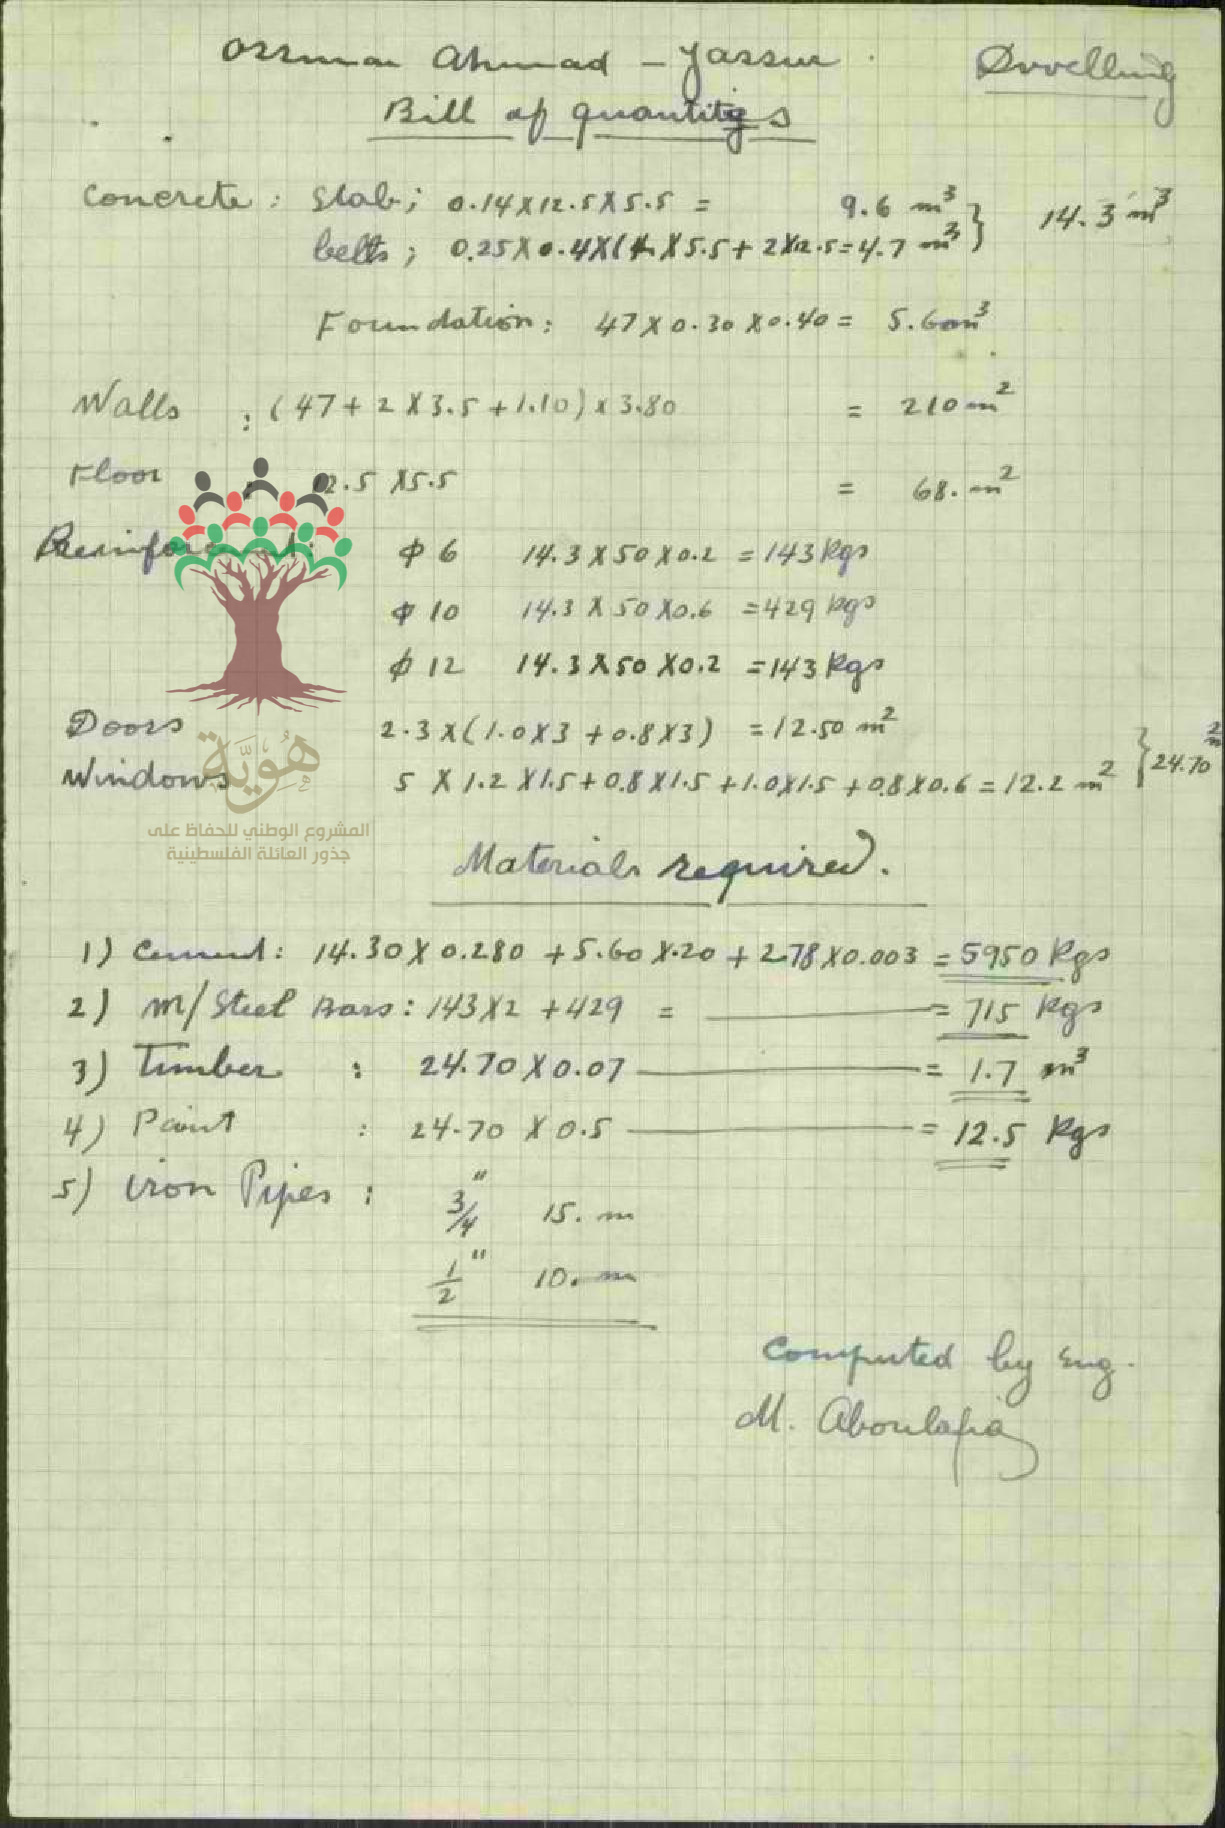 Ossman Ahmad - Yassur. Dwelling
Bill of quantities
Concrete: Slab; 0.14 X 12.5 X 5.5 = 9.6 m³ } 14.3 m³
belts; 0.25 X 0.4 X (4 X 5.5 + 2 X 12.5 = 4.7 m³
Foundation: 47 X 0.30 X 0.40 = 5.60 m³
Walls : (47 + 2 X 3.5 + 1.10) x 3.80 = 210 m²
Floor : 12.5 X 5.5 = 68. m²
Reinforcement: φ 6 14.3 X 50 X 0.2 = 143 Kgs
φ 10 14.3 X 50 X 0.6 = 429 Kgs
φ 12 14.3 X 50 X 0.2 = 143 Kgs
Doors 2.3 X (1.0 X 3 + 0.8 X 3) = 12.50 m² } 24.70 m²
Windows 5 X 1.2 X 1.5 + 0.8 X 1.5 + 1.0 X 1.5 + 0.8 X 0.6 = 12.2 m²
هُوِيَّة
المشروع الوطني للحفاظ على
جذور العائلة الفلسطينية
Materials required.
1) Cement: 14.30 X 0.280 + 5.60 X .20 + 278 X 0.003 = 5950 Kgs
2) m/Steel Bars: 143 X 2 + 429 = = 715 Kgs
3) Timber : 24.70 X 0.07 = 1.7 m³
4) Paint : 24.70 X 0.5 = 12.5 Kgs
5) Iron Pipes : 3/4" 15. m
1/2" 10. m
Computed by Eng.
M. Aboulafia